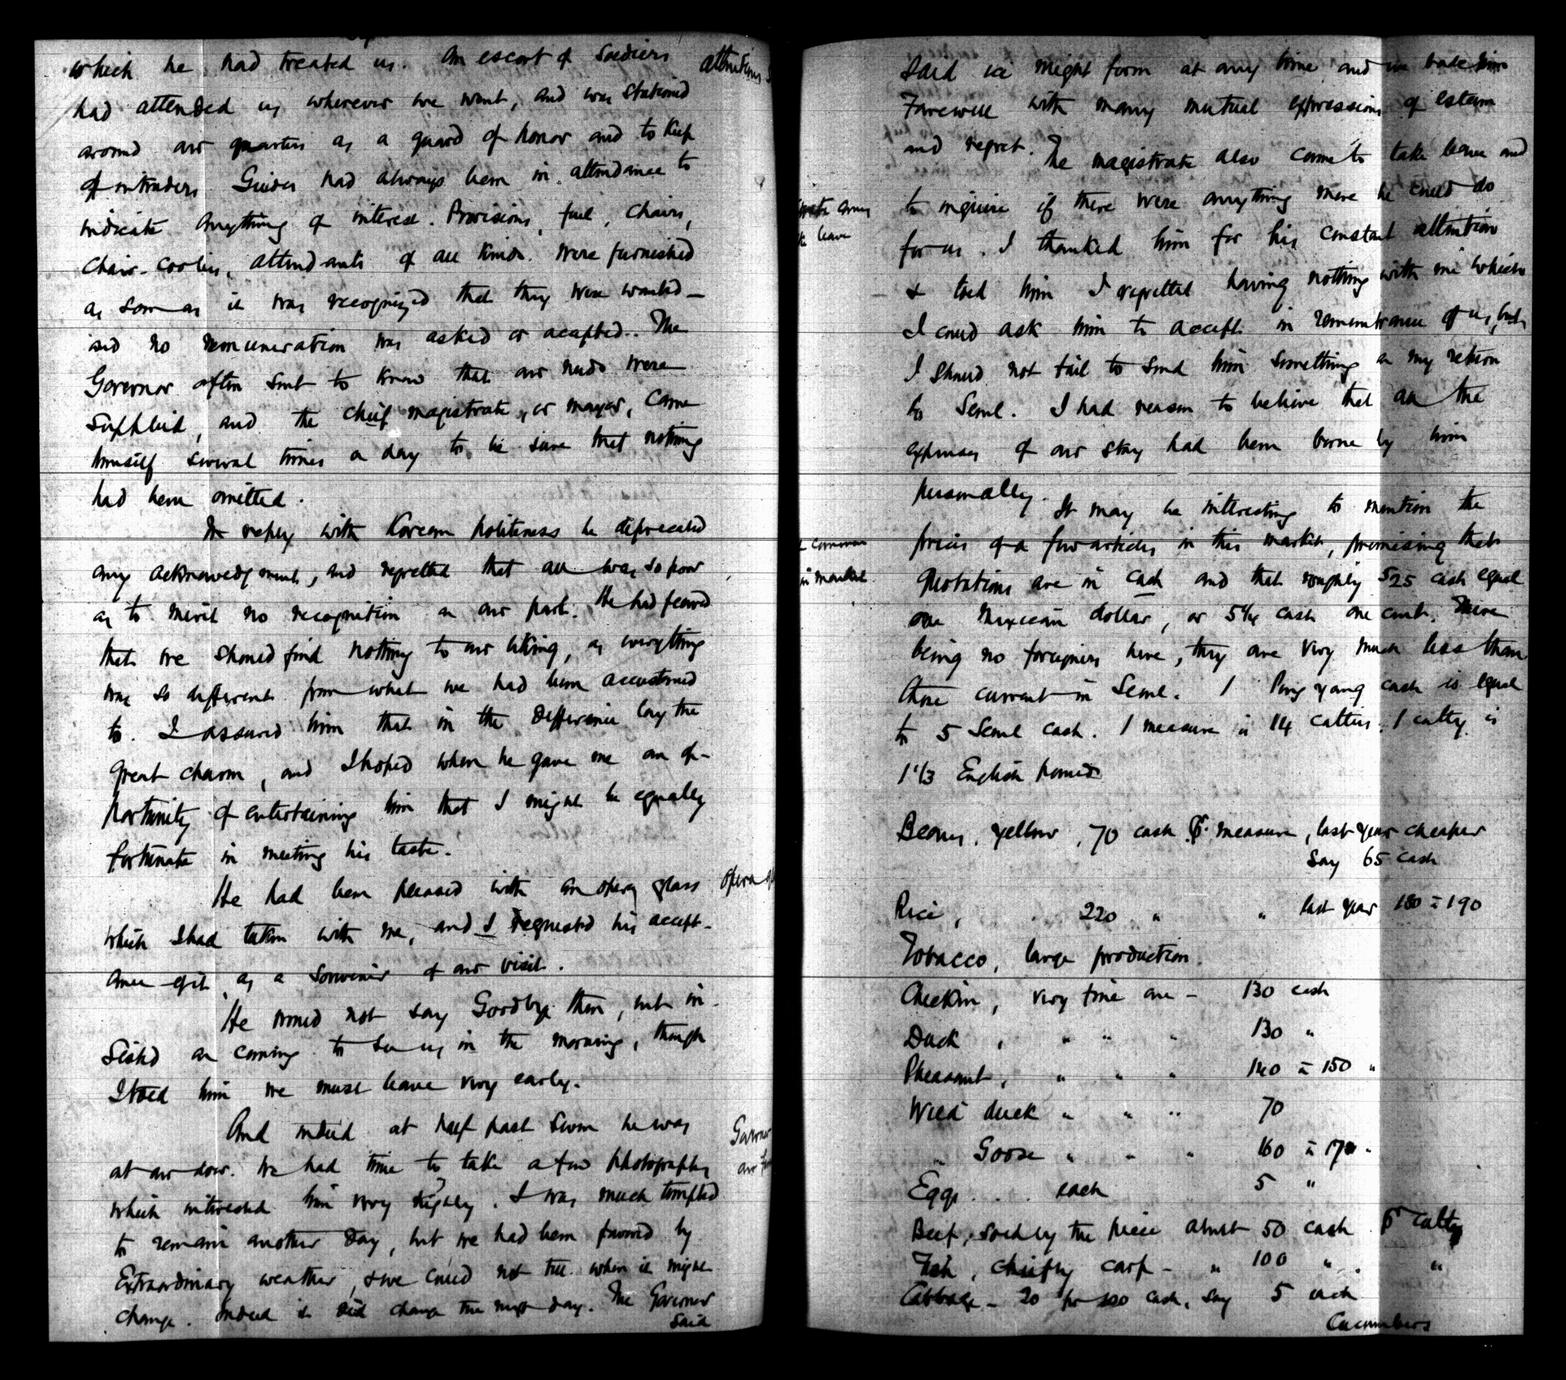 which he had treated us. An escort of Soldiers
attentions
had attended us wherever we went, and was stationed
around our quarters as a guard of honor and to keep
off intruders. Guides had always been in attendance to
indicate anything of interest. Provisions, fuel, chairs,
chair-coolies, attendants of all kinds. Were furnished
as soon as it was recognized that they were wanted—
and no remuneration was asked or accepted. The
Governor often sent to know that our needs were
supplied, and the chief magistrate, or mayor, came
himself several times a day to be sure that nothing
had been omitted.
In reply with Korean politeness he deprecated
any acknowledgement, and regretted that all was so poor
as to merit no recognition on our part. He had feared
that we should find nothing to our liking, as everything
was so different from what we had been accustomed
to. I assured him that in the difference lay the
great charm, and I hoped when he gave me an op-
portunity of entertaining him that I might be equally
fortunate in meeting his taste.
He had been pleased with an opera glass
opera
which I had taken with me, and I requested his accept-
ance of it as a souvenir of our visit.
He would not say Goodbye then, but in-
sisted on coming to see us in the morning, though
I told him we must leave very early.
And indeed at half past seven he was
at our door. We had time to take a few photographs
which interested him very highly. I was much tempted
to remain another day, but we had been favored by
Extraordinary weather, & we could not tell when it might
change. Indeed it did change the next day. The Governor
Said
said we might form at any time and we bade him
Farewell with many mutual expressions of esteem
and regret. The magistrate also came to take leave and
to inquire if there were anything more he could do
leave
for us. I thanked him for his constant attention
& told him I regretted having nothing with me which
I could ask him to accept in remembrance of us, but
I should not fail to send him something on my return
to Seoul. I had reason to believe that all the
expenses of our stay had been borne by him
personally. It may be interesting to mention the
prices of a few articles in this market, promising that
in market
quotations are in cash and that roughly 525 cash equal
one Mexican dollar, or 5¼ cash one cent. There
being no foreigners here, they are very much less than
those current in Seoul. 1 Ping yang cash is equal
to 5 Seoul cash. 1 measure is 14 catties. 1 catty is
1 1/3 English pounds
Beans, yellow, 70 cash ⅌ measure, last year cheaper
say 65 cash
Rice, 220 " " last year 180 à 190
Tobacco, large production.
Chicken, very fine one - 130 cash
Duck, " " " 130 "
Pheasant, " " " 140 à 150 "
Wild duck " " " 70
" Goose " " " 160 à 170 "
Eggs . . each 5 "
Beef, sold by the piece about 50 cash ⅌ catty
Fish, chiefly carp - " 100 " . "
Cabbage - 20 for 100 cash, say 5 each
Cucumbers